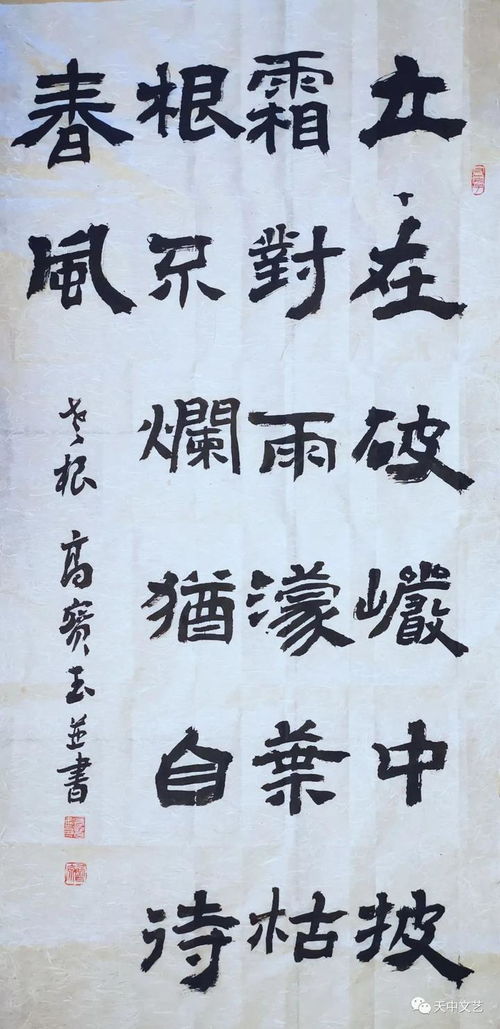 立在破巖中披
霜對雨濛葉枯
根不爛猶自待
春風
老根 高寶玉並書
天中文艺